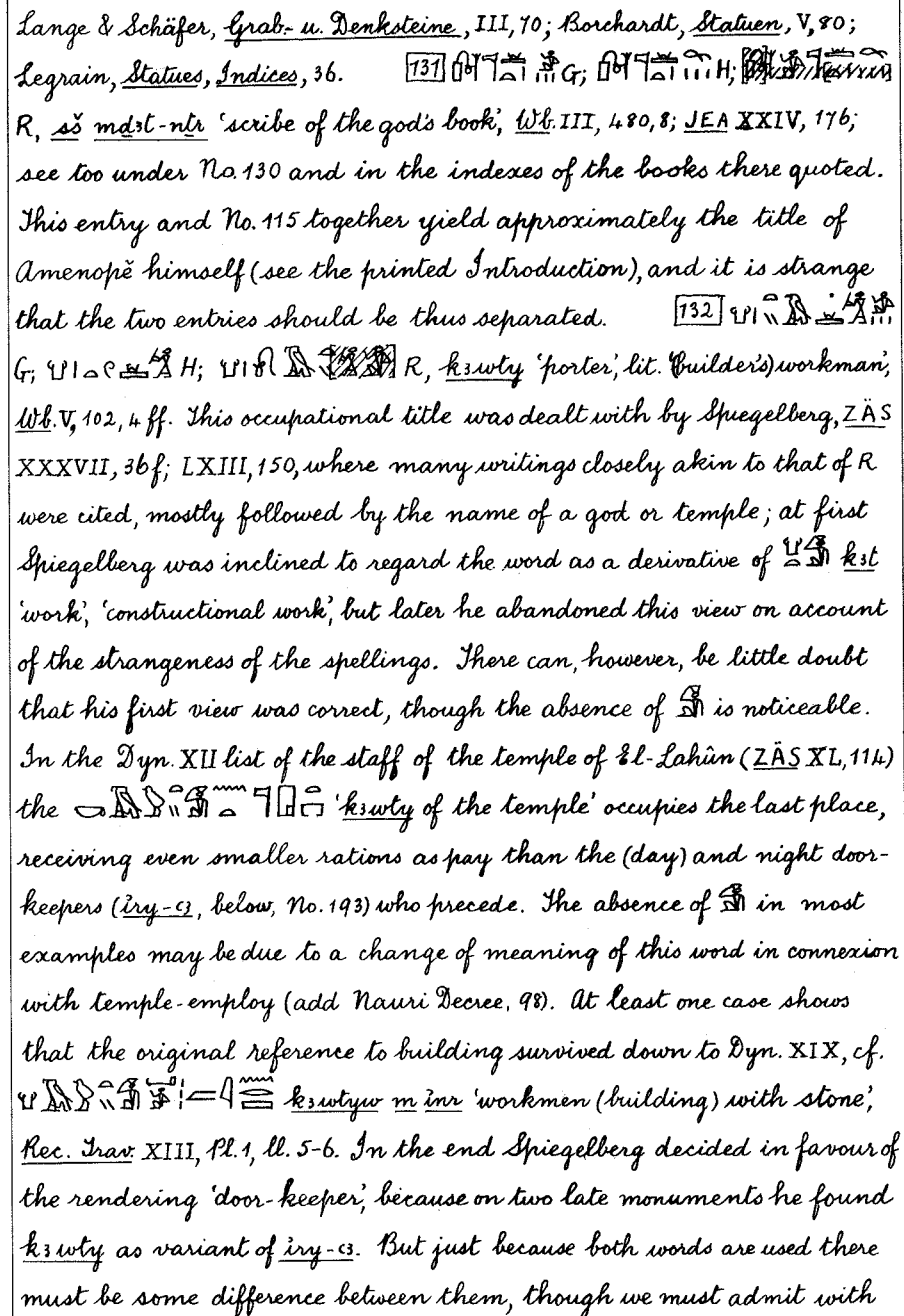 Lange & Schäfer, Grab- u. Denksteine, III, 70; Borchardt, Statuen, V, 80;
Legrain, Statues, Indices, 36. 131 G; H;
R, sš mḏꜣt-nṯr 'scribe of the god's book', Wb. III, 480, 8; JEA XXIV, 176;
see too under No. 130 and in the indexes of the books there quoted.
This entry and No. 115 together yield approximately the title of
Amenopĕ himself (see the printed Introduction), and it is strange
that the two entries should be thus separated. 132
G; H; R, kꜣwty 'porter', lit. '(builder's) workman',
Wb. V, 102, 4 ff. This occupational title was dealt with by Spiegelberg, ZÄS
XXXVII, 36f; LXIII, 150, where many writings closely akin to that of R
were cited, mostly followed by the name of a god or temple; at first
Spiegelberg was inclined to regard the word as a derivative of kꜣt
'work', 'constructional work', but later he abandoned this view on account
of the strangeness of the spellings. There can, however, be little doubt
that his first view was correct, though the absence of is noticeable.
In the Dyn. XII list of the staff of the temple of El-Lahûn (ZÄS XL, 114)
the 'kꜣwty of the temple' occupies the last place,
receiving even smaller rations as pay than the (day) and night door-
keepers (ỉry-ꜥꜣ, below, No. 193) who precede. The absence of in most
examples may be due to a change of meaning of this word in connexion
with temple-employ (add Nauri Decree, 98). At least one case shows
that the original reference to building survived down to Dyn. XIX, cf.
kꜣwtyw m ỉnr 'workmen (building) with stone',
Rec. Trav. XIII, Pl. 1, ll. 5-6. In the end Spiegelberg decided in favour of
the rendering 'door-keeper', because on two late monuments he found
kꜣwty as variant of ỉry-ꜥꜣ. But just because both words are used there
must be some difference between them, though we must admit with